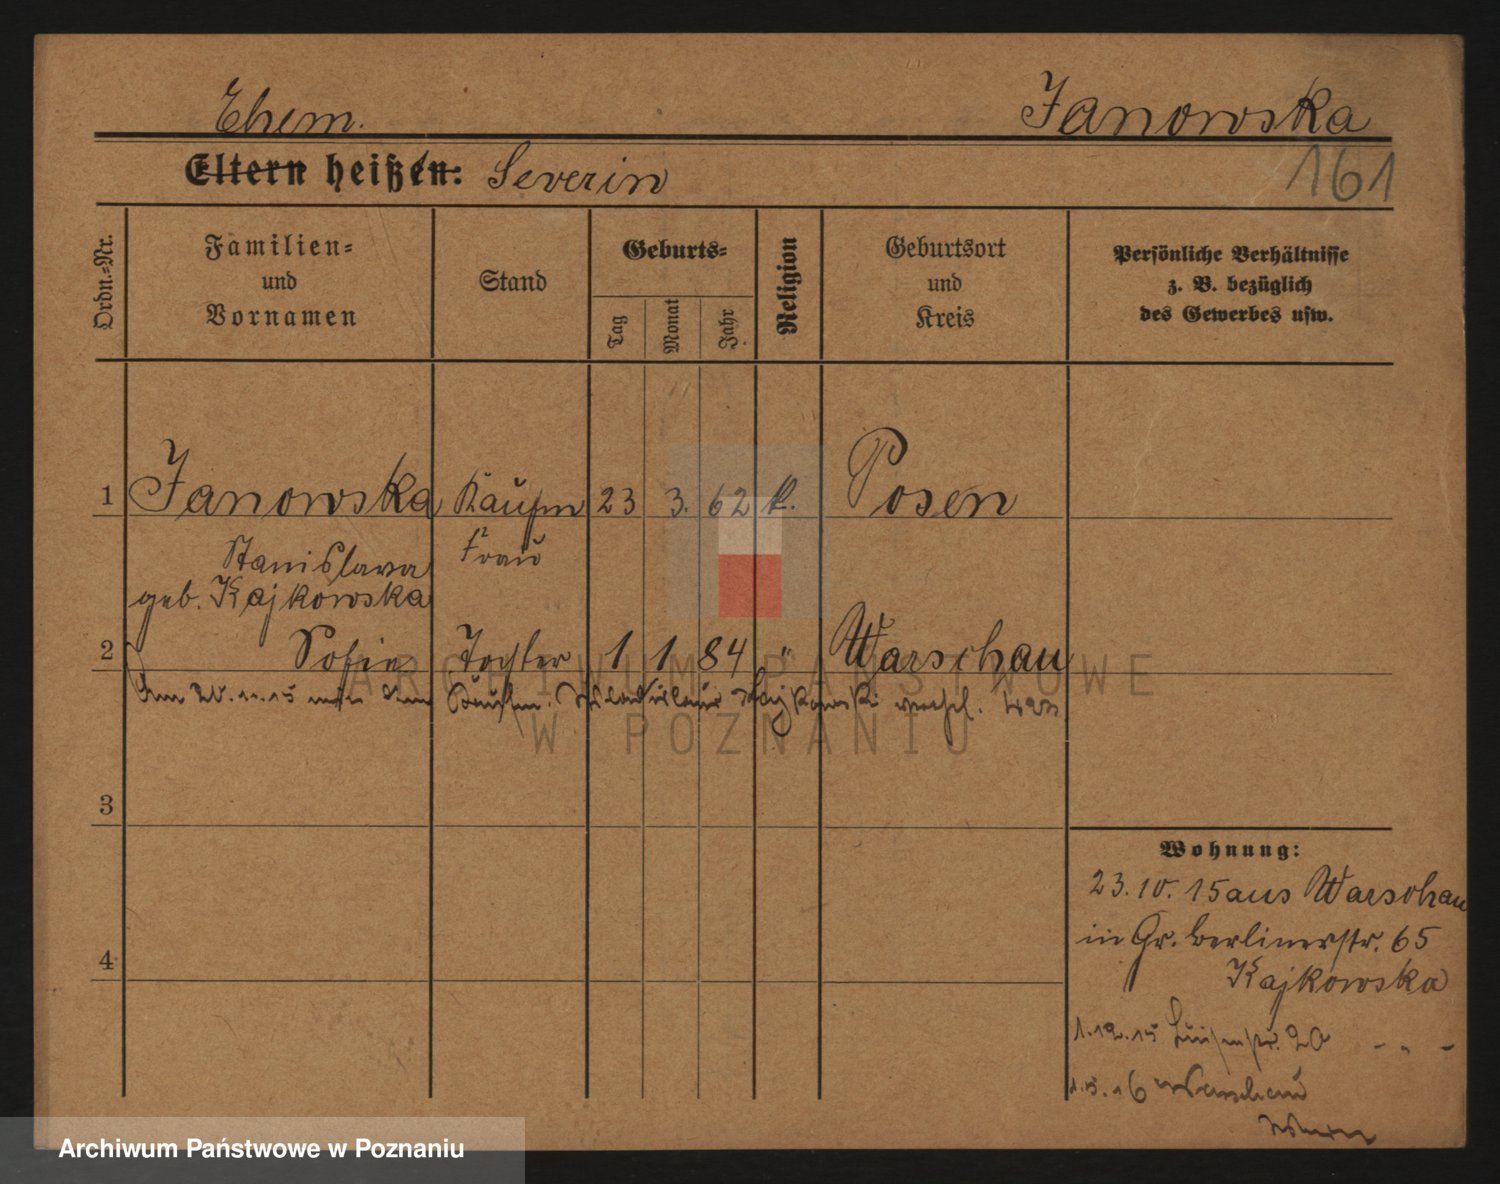 Ehem.
Janowska
Eltern heißen: Severin
161
Ordn.=Nr.
Familien=
und
Vornamen
Stand
Geburts=
Tag
Monat
Jahr
Religion
Geburtsort
und
Kreis
Persönliche Verhältnisse
z. B. bezüglich
des Gewerbes usw.
1 Janowska Kaufm 23 3. 62 k. Posen
Stanislava Frau
geb. Kajkowska
2 Sofie Tochter 1 1 84 " Warschau
Am 20.11.15 mit dem Kaufm. Kajkowski
3
4
Wohnung:
23.10.15 aus Warschau
in Gr. Berlinerstr. 65
Kajkowska
1.12.15 Luisenstr. 20 - " -
Warschau
ARCHIWUM PAŃSTWOWE
W POZNANIU
Archiwum Państwowe w Poznaniu